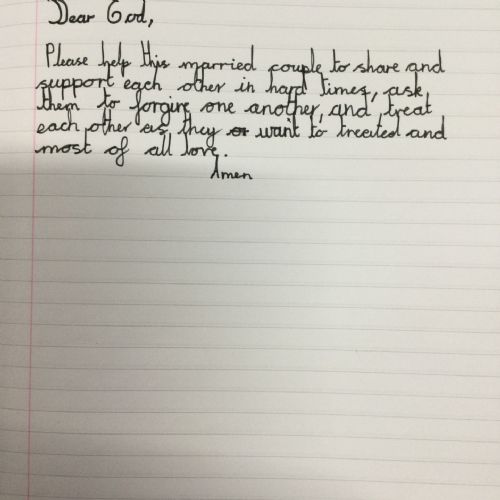 Dear God,
Please help this married couple to share and
support each other in hard times, ask
them to forgive one another, and treat
each other as they or want to treeted and
most of all love.
Amen